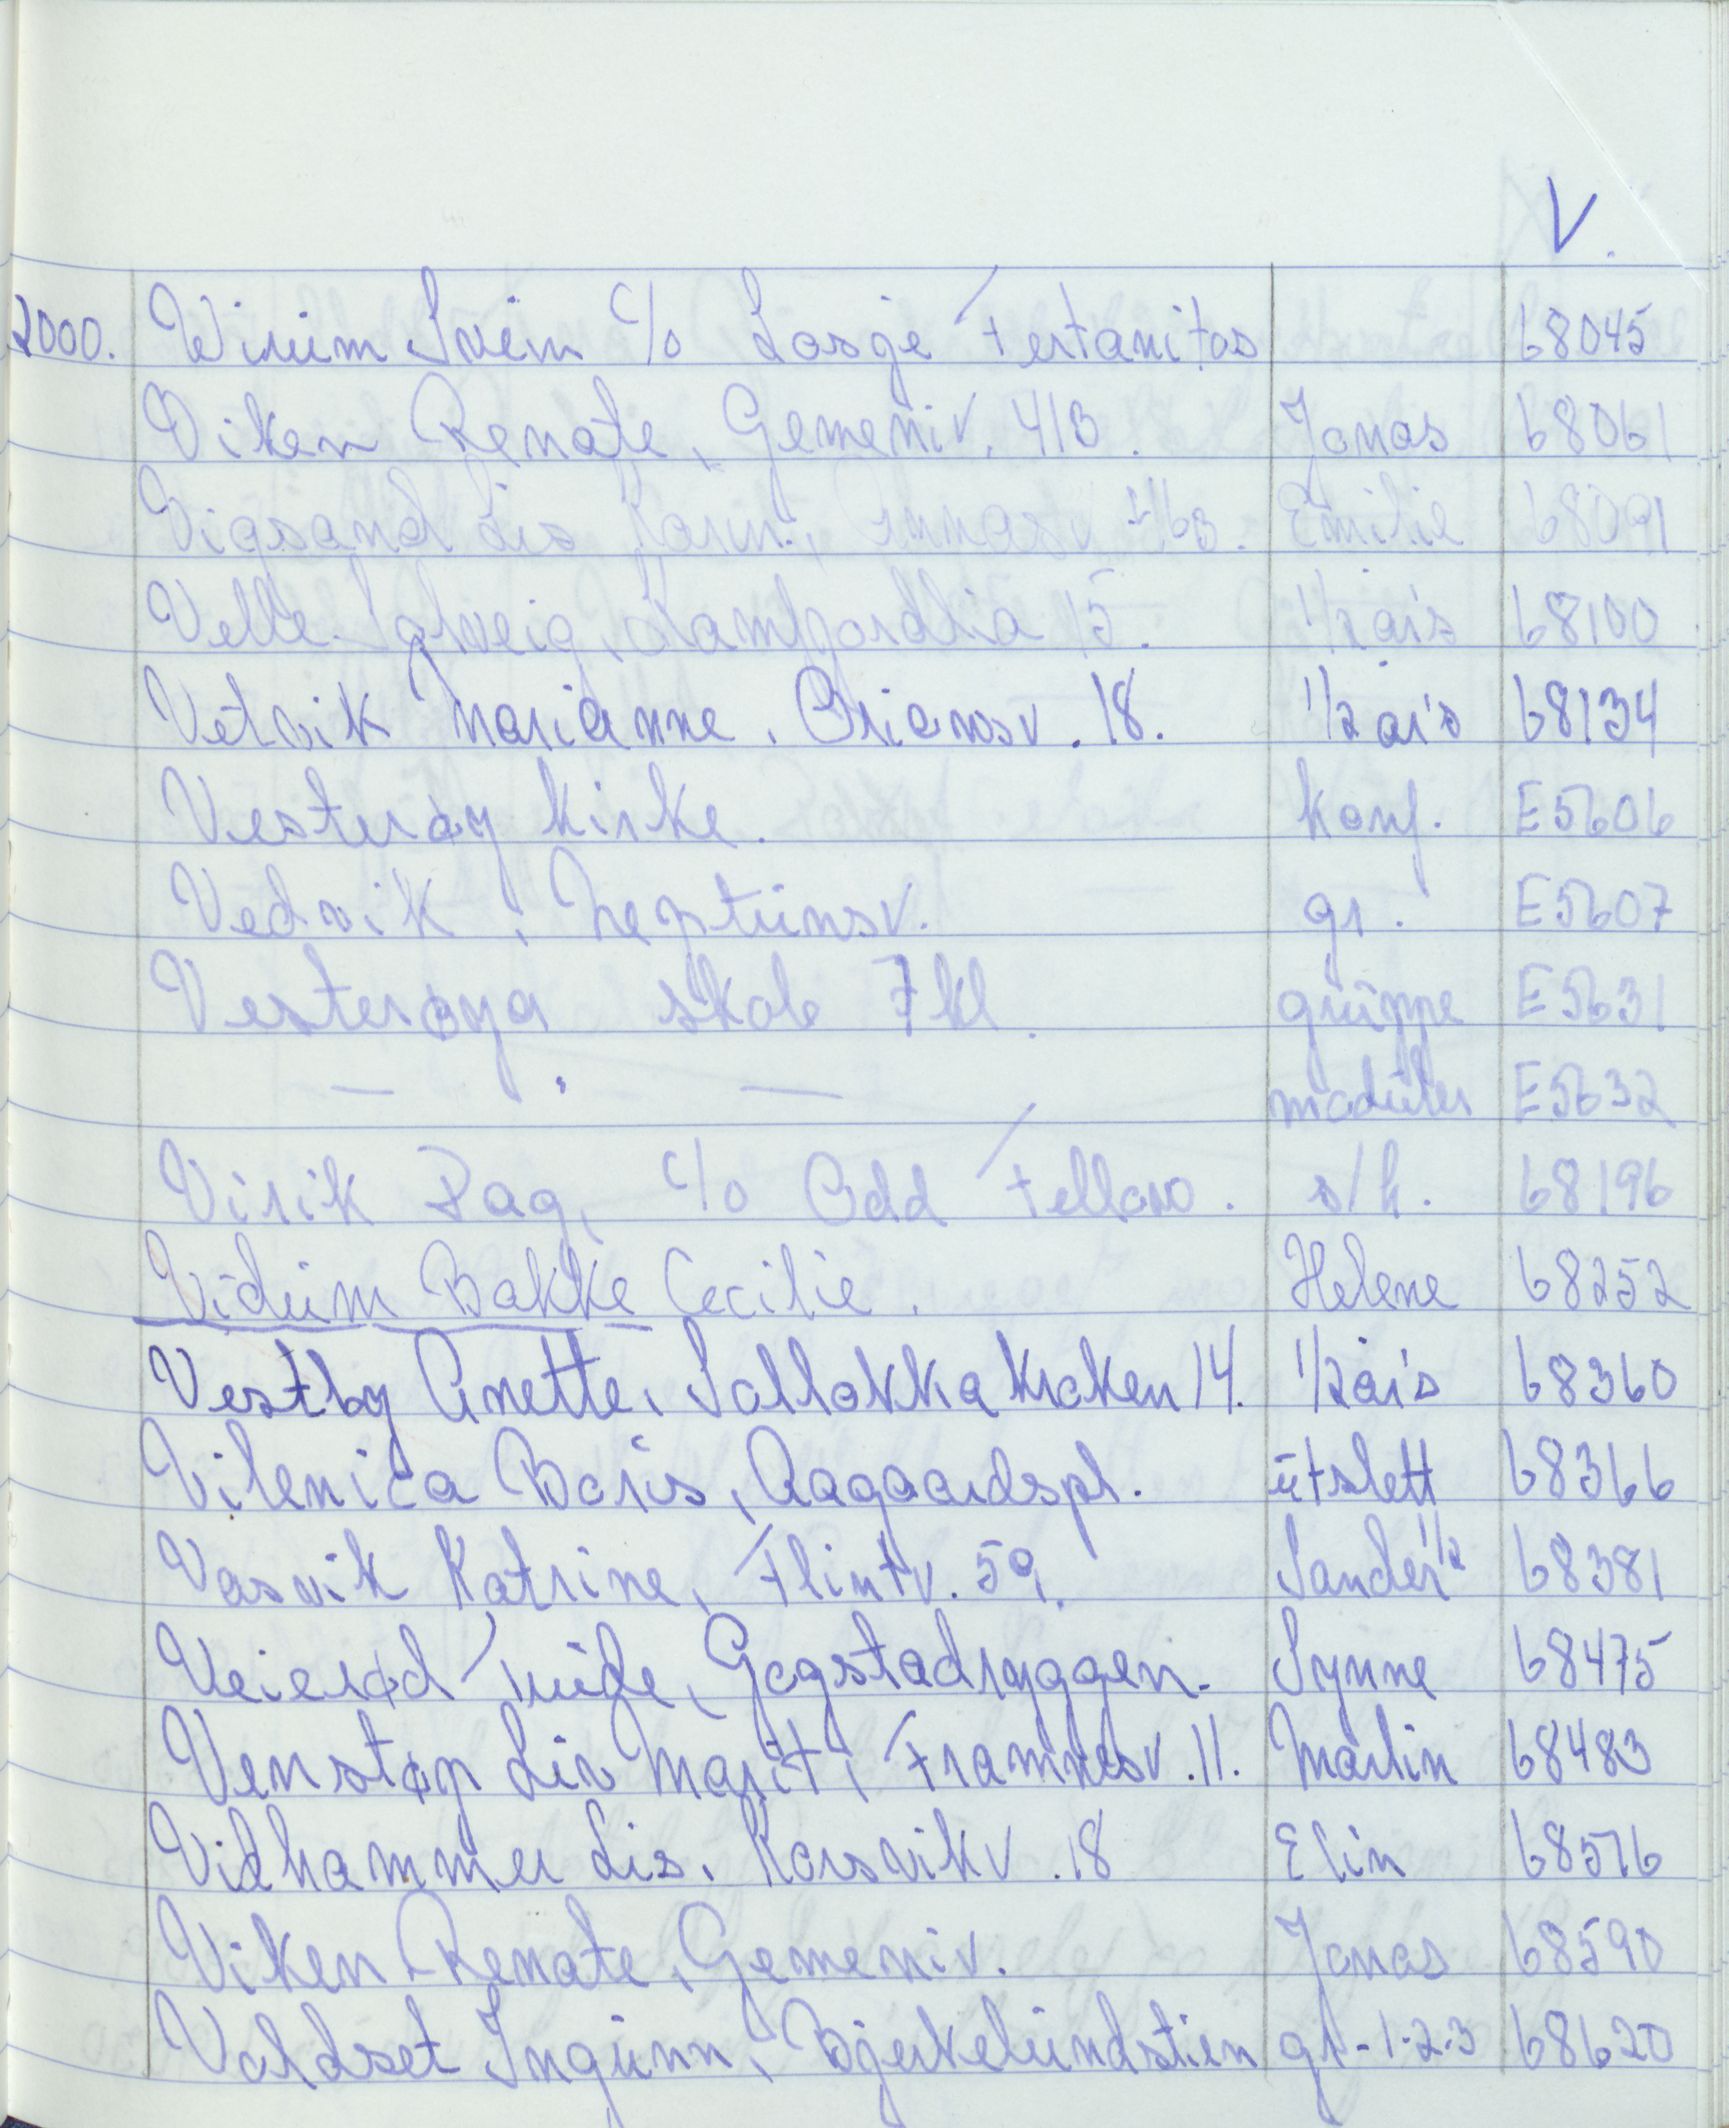 V.
2000. Wirum Svein c/o Losje Fertanitas 68045
Viken Renate, Gemeniv. 41B. Jonas 68061
Vigsand Lis Karin, Emilie 68091
Velle Solveig, Kamfjordlia 15. 1/2 års 68100
Vetvik Marianne, Orionsv. 18. 1/2 års 68134
Vesterøy Kirke. Konf. E5606
Vedvik, Neptunsv. gr. E5607
Vesterøya skole 7kl. gruppe E5631
— " — moduler E5632
Virik Dag, c/o Odd Fellow. s/h. 68196
Vidum Bakke Cecilie. Helene 68252
Vestby Anette, Solløkka Kroken 14. 1/2 års 68360
Vilenica Boris, Aagaardspl. utslett 68366
Vasvik Katrine, Flintv. 59. Sander 1/2 68381
Veierød Frude, Gogstadryggen. Synne 68475
Venstøp Liv Marit, Framnesv. 11. Marlin 68483
Vidhammer Lis, Korsvikv. 18 Elin 68576
Viken Renate, Gemeniv. Jonas 68590
Voldset Ingunn, Bjerkelundstien gr - 1-2-3 68620